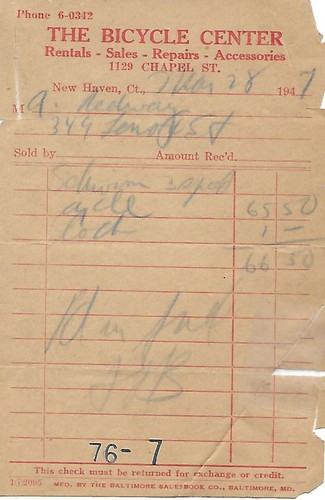 Phone 6-0342
THE BICYCLE CENTER
Rentals - Sales - Repairs - Accessories
1129 CHAPEL ST.
New Haven, Ct., Mar 28 1947
M A. Redway
349 Lenox St
Sold by Amount Rec'd.
Schwinn 3 speed
cycle 65 50
lock 1 —
66 50
Pd in full
76- 7
This check must be returned for exchange or credit.
MFD. BY THE BALTIMORE SALESBOOK CO., BALTIMORE, MD.